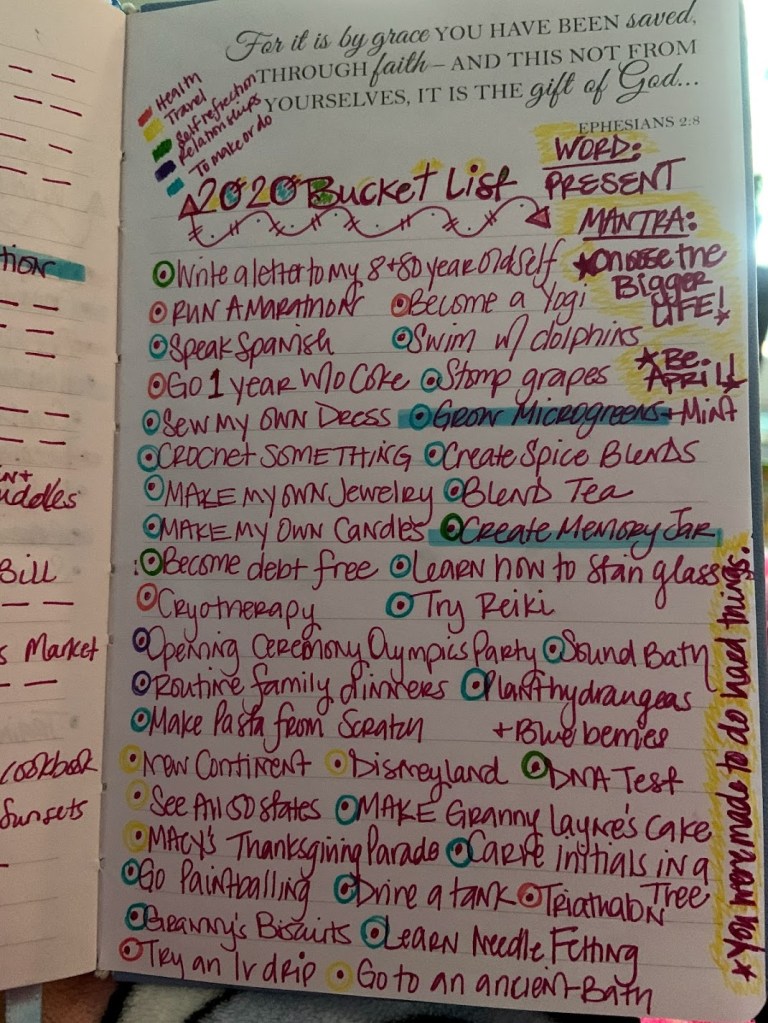 For it is by grace YOU HAVE BEEN saved,
THROUGH faith – AND THIS NOT FROM
YOURSELVES, IT IS THE gift of God...
EPHESIANS 2:8
Health
Travel
Self reflection
Relationships
To make or do
2020 Bucket List
WORD:
PRESENT
MANTRA:
Choose the
Bigger
LIFE!
Be.
APRIL!
Write a letter to my 8 + 80 year old self
RUN A MARATHON Become a Yogi
Speak Spanish Swim w/ dolphins
Go 1 year w/o Coke Stomp grapes
Sew my own Dress Grow Microgreens + Mint
CROCHET SOMETHING Create Spice Blends
MAKE my own Jewelry Blend Tea
MAKE MY OWN Candles Create Memory Jar
Become debt free Learn how to stain glass
Cryotherapy Try Reiki
Opening Ceremony Olympics Party Sound Bath
Routine family dinners Plant hydrangeas
+ Blueberries
Make Pasta from Scratch
New Continent Disneyland DNA Test
See All 50 states MAKE Granny Layne's Cake
MACY's Thanksgiving Parade Carve initials in a
Tree
Go Paintballing Drive a tank Triathalon
Granny's Biscuits Learn Needle Felting
Try an IV drip Go to an ancient Bath
You were made to do hard things.
tion
uddles
Bill
s Market
cookbook
Sunsets